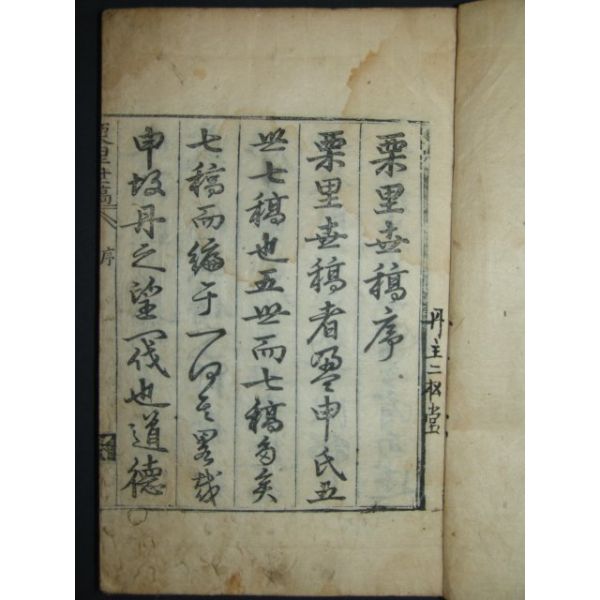 册主二松堂
栗里世稿序
栗里世稿者盈申氏五
世七稿也五世而七稿多矣
七稿而編于一何其畧哉
申故丹之望閥也道德
栗里世稿
序